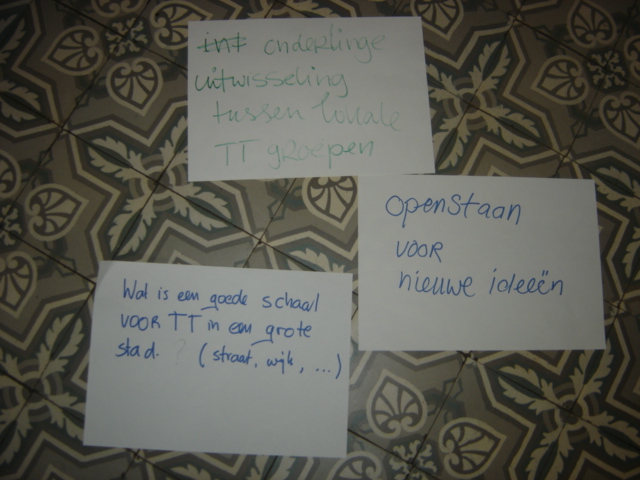 int onderlinge
uitwisseling
tussen lokale
TT groepen
openstaan
voor
nieuwe ideeën
Wat is een goede schaal
voor TT in een grote
stad. ? (straat, wijk, ...)